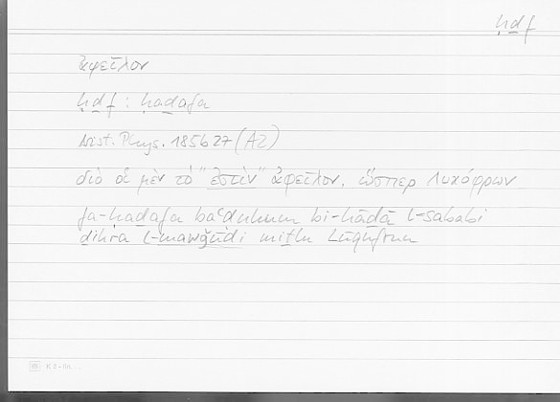 ḥḏf
ἀφεῖλον
ḥḏf : ḥaḏafa
Arist. Phys. 185b27 (A2)
διὸ οἱ μὲν τὸ "ἐστὶν" ἀφεῖλον, ὥσπερ Λυκόφρων
fa-ḥaḏafa baʿḍuhum bi-hāḏā l-sababi
ḏikra l-mawǧūdi miṯlu Lūqufrun